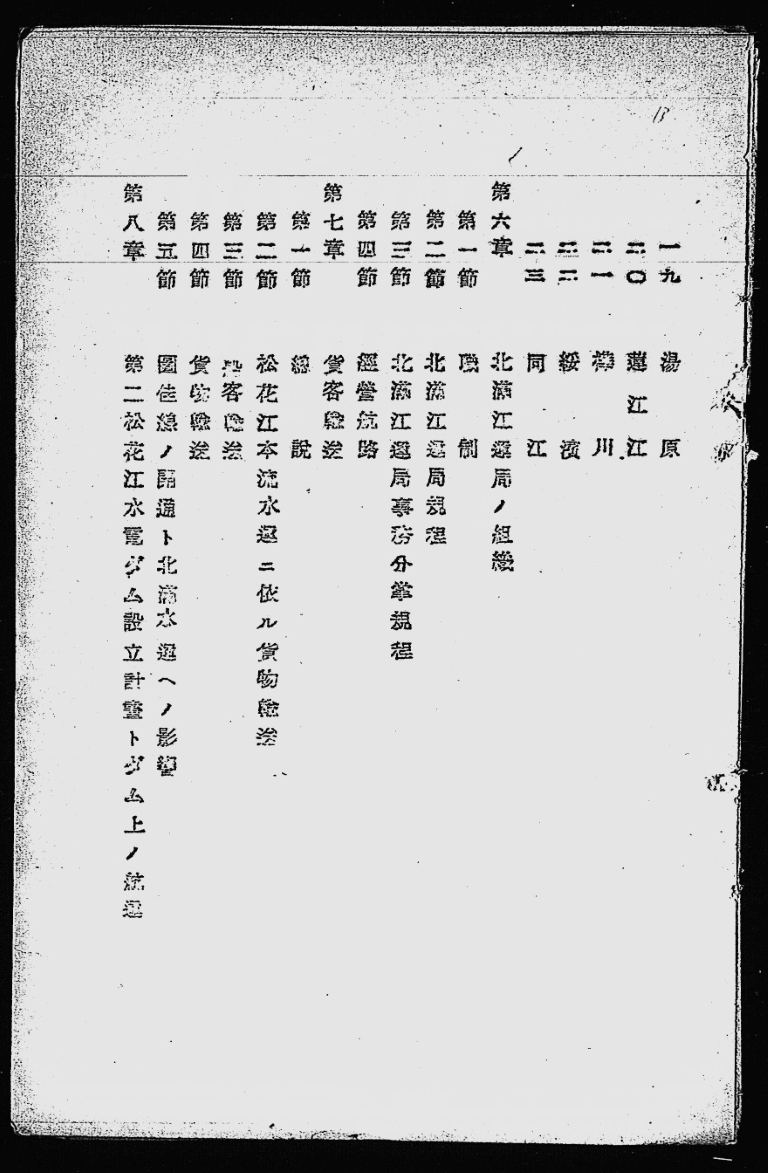 一九 湯原
二〇 蓮江江
二一 樺川
二二 綏濱
二三 同江
第六章 北滿江運局ノ組織
第一節 職制
第二節 北滿江運局規程
第三節 北滿江運局事務分掌規程
第四節 經營航路
第七章 貨客輸送
第一節 總説
第二節 松花江本流水運ニ依ル貨物輸送
第三節 旅客輸送
第四節 貨物輸送
第五節 圖佳線ノ開通ト北滿水運ヘノ影響
第八章 第二松花江水電ダム設立計畫トダム上ノ航運